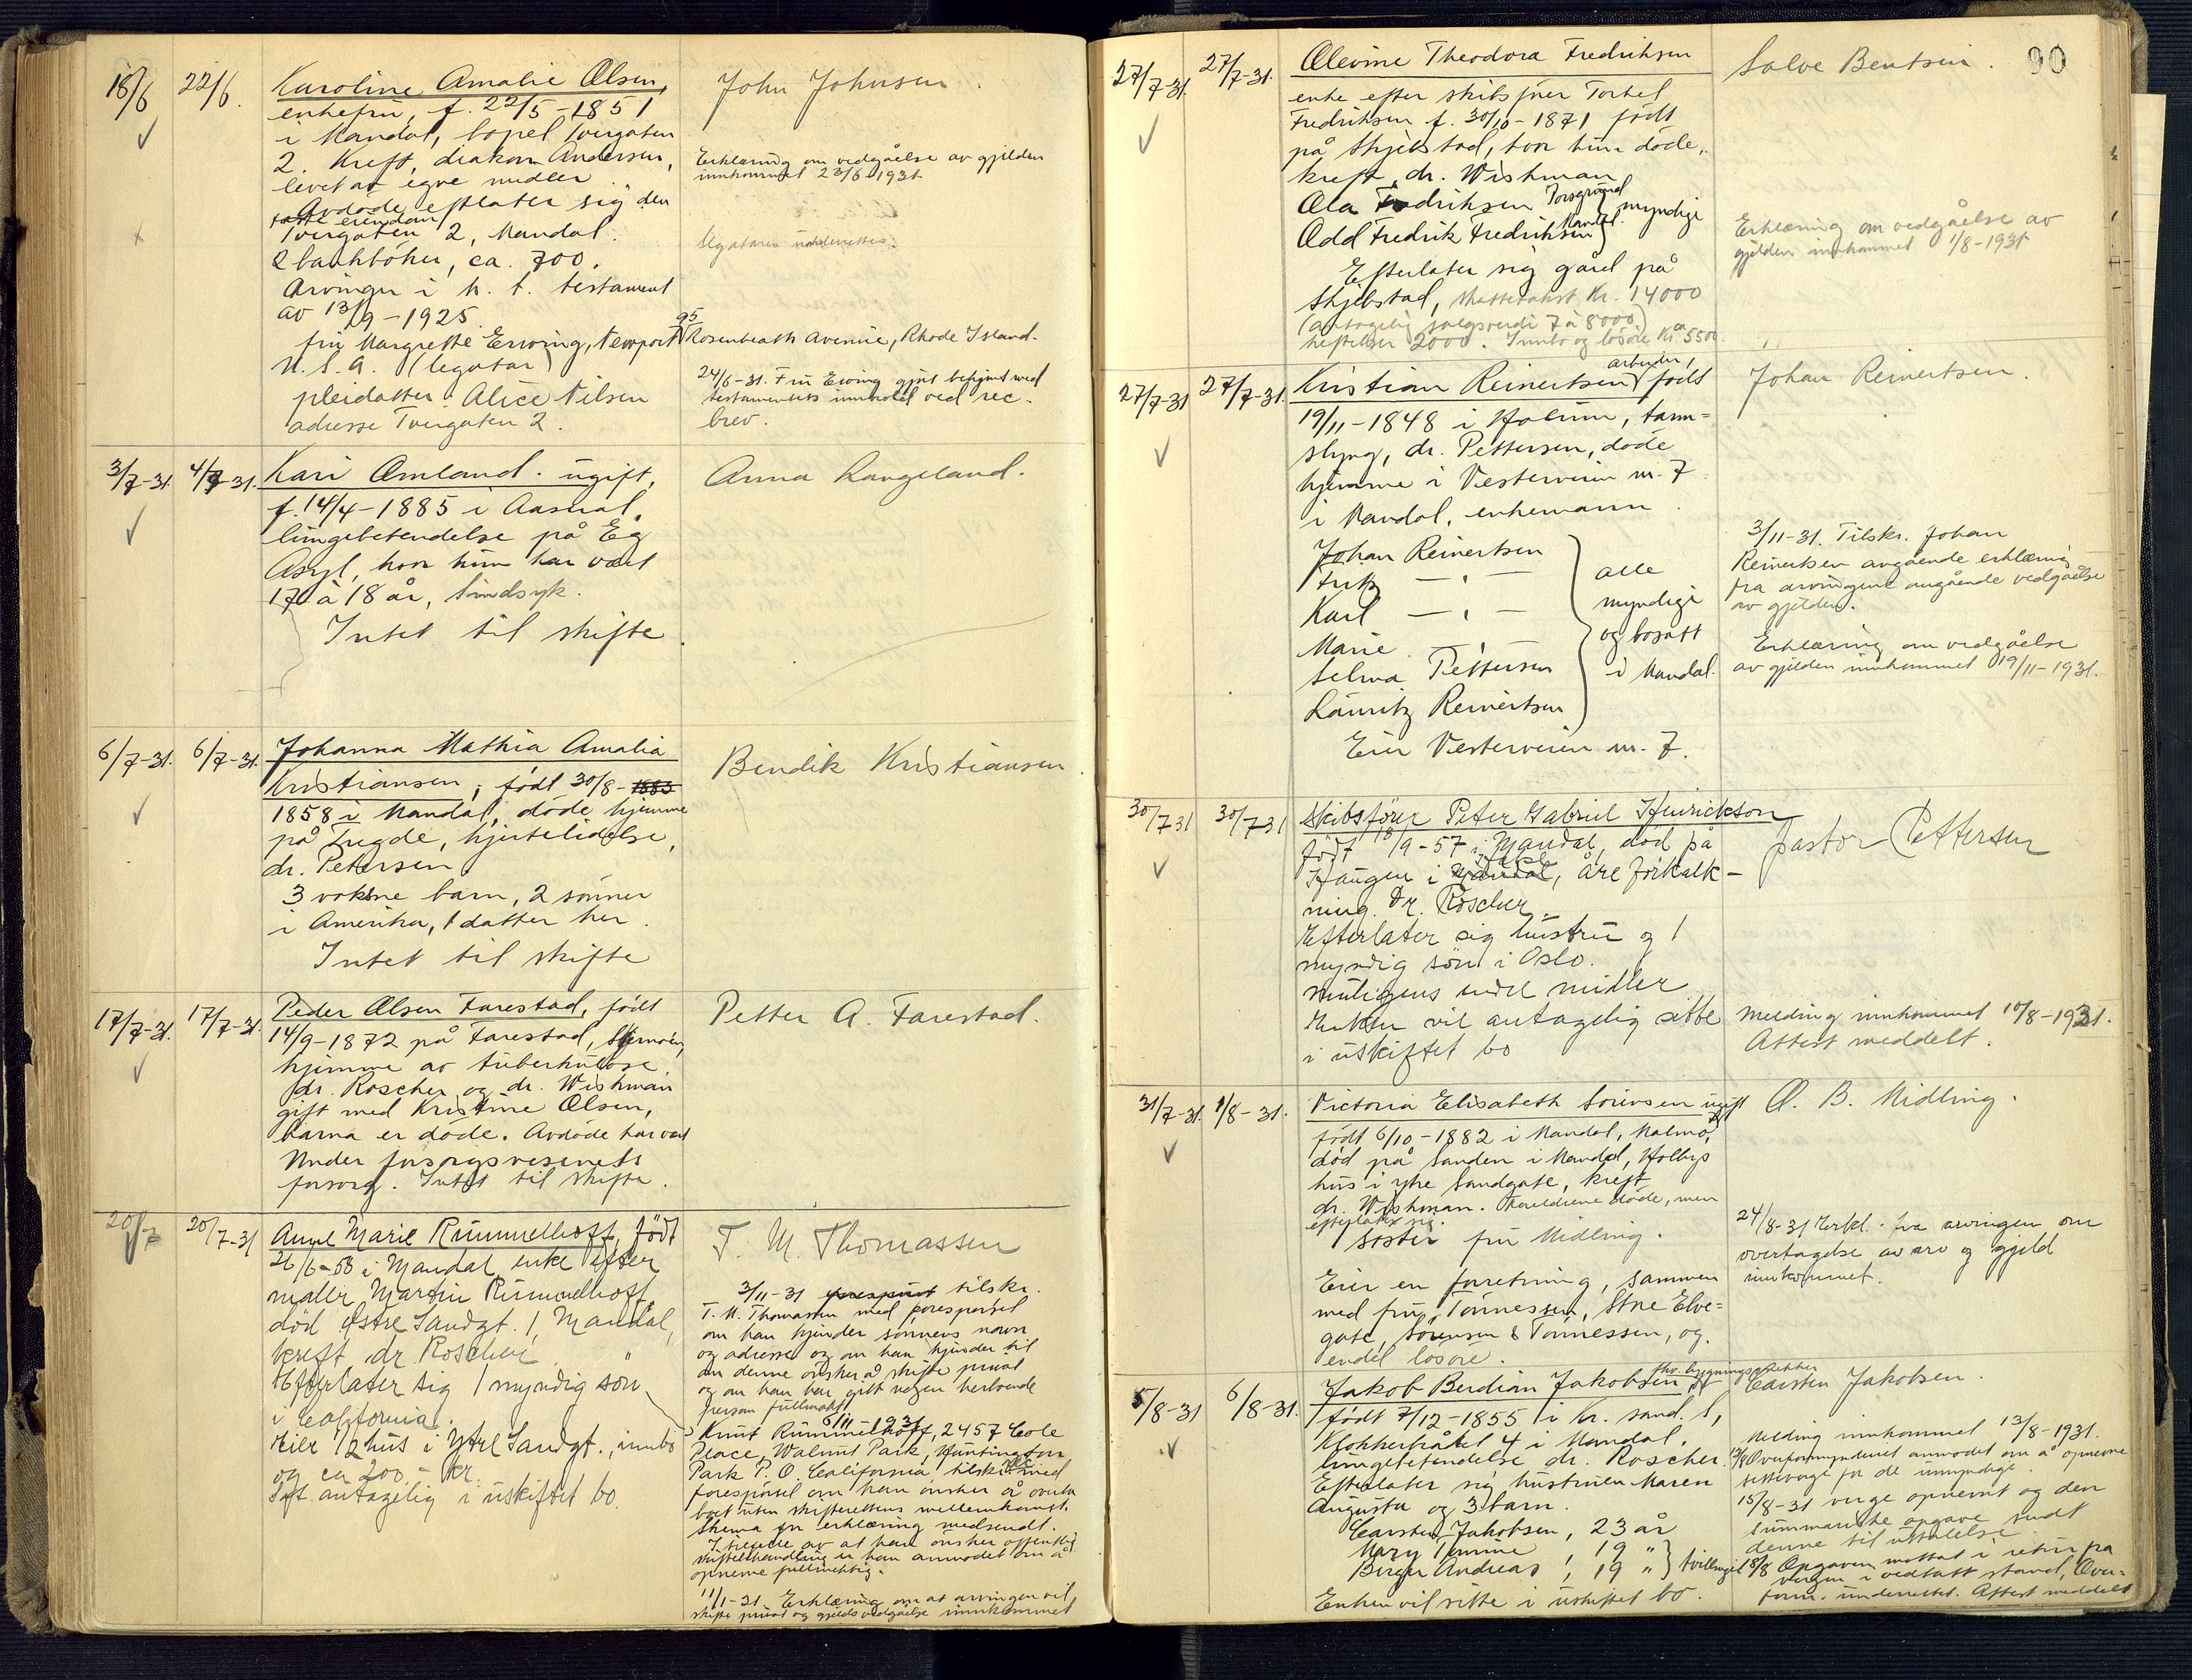 18/6 22/6. Karoline Amalie Olsen, John Johnsen.
enkefru, f. 22/5-1851
i Mandal, bopel Tvergaten
2. Kreft, diakon Andersen,
levet av egne midler
Avdøde efterlater sig den
faste eiendom
Tvergaten 2, Mandal.
2 bankbøker, ca. 700.
Arvinger i h. t. testament
av 13/9-1925.
fru Margrethe Erving, Newport 95 Rosenbeath Avenue, Rhode Island.
U.S.A. (legatar)
pleidatter: Alice Nilsen
adresse Tvergaten 2.
Erklæring om vedgåelse av gjelden
innkommet 23/6 1931.
24/6-31. Fru Erving gjort bekjent med
testamentets innhold ved rec-
brev.
3/7-31. 4/7-31. Kari Omland. ugift, Anna Langeland.
f. 14/4-1885 i Aaseral,
lungebetendelse på Eg
Asyl, hvor hun har vært
17 à 18 år, sindsyk.
Intet til skifte.
6/7-31. 6/7-31. Johanna Mathia Amalia Bendik Kristiansen
Kristiansen, født 30/8-1885
1858 i Mandal, døde hjemme
på Tregde, hjertelidelse,
dr. Petersen
3 voksne barn, 2 sønner
i Amerika, 1 datter her.
Intet til skifte
17/7-31. 17/7-31. Peder Olsen Farestad, født Petter A. Farestad.
14/9-1872 på Farestad, Skjernøy,
hjemme av tuberkulose
dr. Roscher og dr. Wishman
gift med Kristine Olsen,
barna er døde. Avdøde har vært
under forsorgsvesenets
forsorg. Intet til skifte.
20/7 20/7-31 Anne Marie Rummelhoff, født T. M. Thomassen
26/6-58 i Mandal enke efter
maler Martin Rummelhoff
død Østre Sandgt. 1, Mandal,
kreft, dr. Roscher
Efterlater sig 1 myndig søn
i California.
Eier 1/2 hus i Ytre Sandgt., innbo
og ca 200.- kr.
antagelig i uskiftet bo.
3/11-31 forespurt tilskr.
T. M. Thomassen med forespørsel
om han kjender sønnens navn
og adresse og om han kjender til
om denne ønsker å skifte privat
og om han har gitt nogen herboende
person fullmakt.
6/11-1931
Knut Rummelhoff, 2457 Cole
Place, Walnut Park, Huntington
Park P. O. California, tilskr. med
forespørsel om han ønsker å overta
boet uten skifterettens mellemkomst.
Skema for erklæring medsendt.
I tilfelle av at han ønsker offentlig
skiftebehandling er han anmodet om å
opnevne fullmektig.
11/1-31. Erklæring om at arvingen vil
skifte privat og gjelds vedgåelse innkommet
90
27/7-31. 27/7-31. Olevine Theodora Fredriksen Salve Bentsen.
enke efter skibsfører Torkel
Fredriksen f. 30/10-1871 født
på Skjebstad, hvor hun døde,
kreft, dr. Wishman
Ola Fredriksen Torsgrund
Odd Fredrik Fredriksen Mandal. myndige
Efterlater sig gård på
Skjebstad, skattetakst kr. 14000
(antagelig salgsverdi 7 à 8000)
heftelser 2000. Innbo og løsøre kr. ca 5500.
Erklæring om vedgåelse av
gjelden innkommet 1/8-1931
27/7-31 27/7-31. Kristian Reinertsen, arbeider, født Johan Reinertsen.
19/11-1848 i Holum, tarm-
slyng, dr. Pettersen, døde
hjemme i Vesterveien nr. 7
i Mandal, enkemann.
Johan Reinertsen
Fritz — " —
Karl — " —
Marie — " —
Selma Pettersen
Lauritz Reinertsen
alle
myndige
og bosatt
i Mandal.
Eier Vesterveien nr. 7.
3/11-31. Tilskr. Johan
Reinertsen angående erklæring
fra arvingene angående vedgåelse
av gjelden.
Erklæring om vedgåelse
av gjelden innkommet 19/11-1931.
30/7 31 30/7 31 Skibsfører Peter Gabriel Henrickson Pastor Pettersen
født 18/9-57 i Mandal, død på
Haugen i Mandal, åreforkalk-
ning. Dr. Roscher.
Efterlater sig hustru og 1
myndig søn i Oslo.
muligens endel midler
Enken vil antagelig sitte
i uskiftet bo
Melding innkommet 10/8-1931.
Attest meddelt.
31/7-31. 1/8-31. Victoria Elisabeth Sørensen ugift O. B. Midling.
født 6/10-1882 i Mandal, Malmø,
død på Sanden i Mandal, Holbys
hus i ytre Sandgate, kreft
dr. Wishman. Foreldrene døde, men
efterlater sig
søster fru Midling.
Eier en forretning, sammen
med fru Tønnessen, Store Elve-
gate, Sørensen & Tønnessen, og
endel løsøre.
24/8-31 Erkl. fra arvingen om
overtagelse av arv og gjeld
innkommet.
5/8-31 6/8-31. Jakob Berdian Jakobsen, fhv. bygningssnekker Carsten Jakobsen.
født 7/12-1855 i Kr. sand. S,
Klokkertråkket 4 i Mandal.
lungebetendelse dr. Roscher.
Efterlater sig hustruen Maren
Augusta og 3 barn.
Carsten Jakobsen, 23 år
Mary Tomine, 19 "
Birger Andreas, 19 " } tvillinger
Enken vil sitte i uskiftet bo.
Melding innkommet 13/8-1931.
13/8 Overformynderiet anmodet om å opnevne
setteverge for de umyndige.
15/8-31 verge opnevnt og den
summariske opgave sendt
denne til uttalelse.
18/8 Opgaven mottat i retur fra
vergen i vedtatt stand, Over-
form. underrettet. Attest meddelt